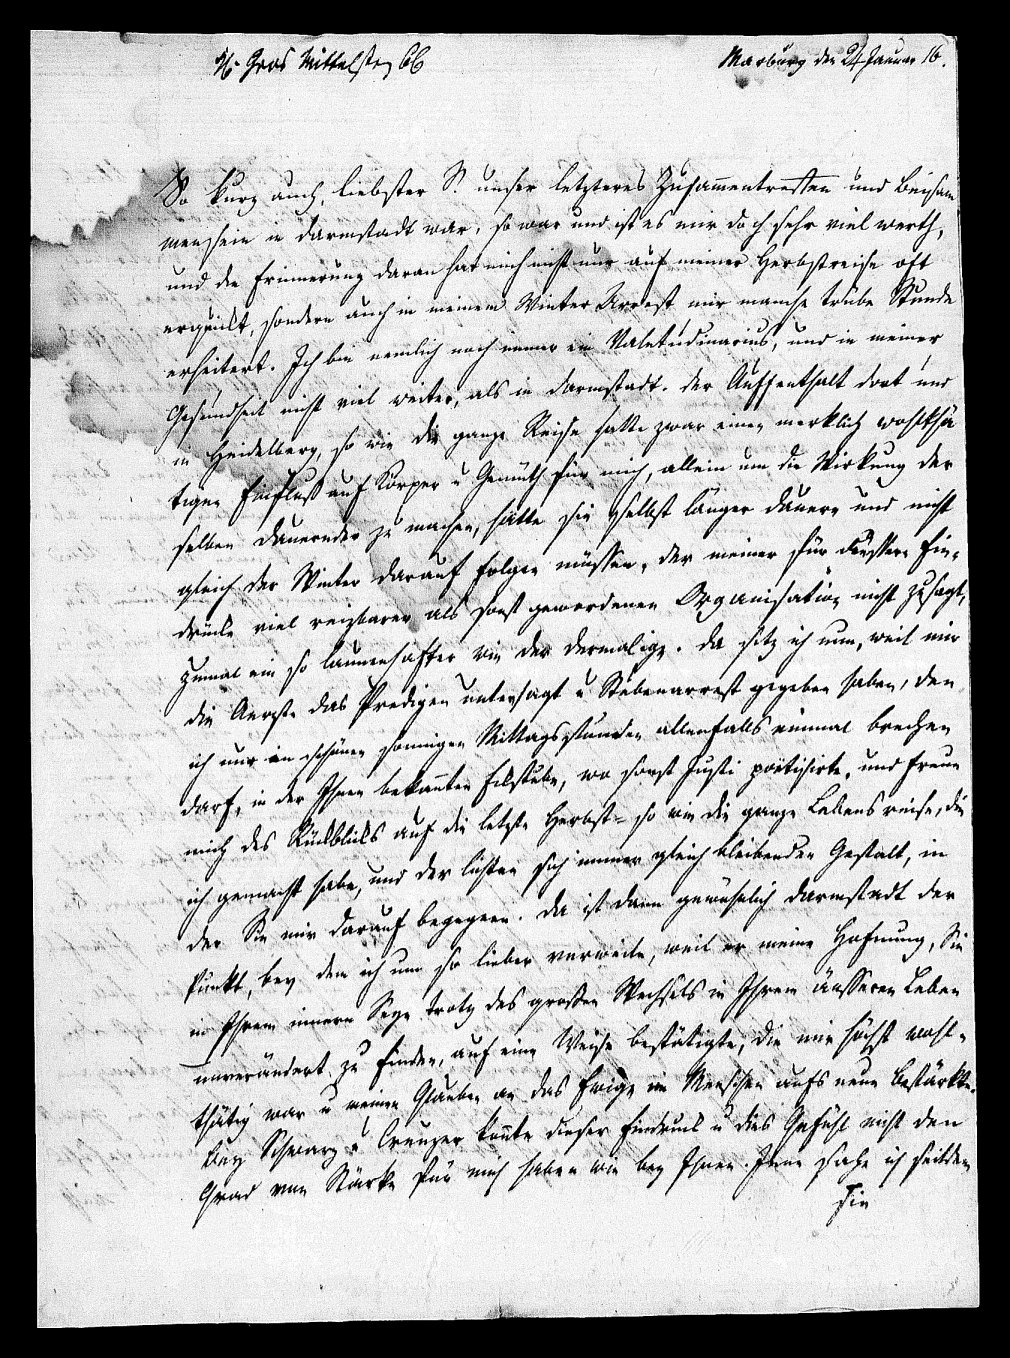 Marburg den 24 Januar 16.
So kurz auch, liebster S. unser letzteres Zusammentreffen und Beisam
menseyn in Darmstadt war, so war und ist es mir doch sehr viel werth,
und die Erinnerung daran hat mich nicht nur auf meiner Herbstreise oft
erquickt, sondern auch in meinem Winter Arrest mir manche trübe Stunde
erheitert. Ich bin nemlich noch immer ein Valetudinarius, und in meiner
Gesundheit nicht viel weiter, als in Darmstadt. Der Auffenthalt dort und
in Heidelberg, so wie die ganze Reise hatte zwar einen merklich wohlthä
tigen Einfluß auf Körper u Gemüth für mich, allein um die Wirkung der
selben dauernder zu machen, hätte sie selbst länger dauern und nicht
gleich der Winter darauf folgen müssen, der meiner für äussere Ein-
drücke viel reizbarer als sonst gewordenen Organisation nicht zusagt,
zumal ein so launenhafter wie der dermalige. Da sitz ich nun, weil mir
die Aerzte das Predigen untersagt u Stubenarrest gegeben haben, den
ich nur in schönen sonnigen Mittagsstunden allenfalls einmal brechen
darf, in der Ihnen bekannten Eckstube, wo sonst Justi poëtisirte, und freue
mich des Rückblicks auf die letzte Herbst- so wie die ganze Lebensreise, die
ich gemacht habe, und der lichten sich immer gleich bleibenden Gestalt, in
der Sie mir darauf begegnen. Da ist dann gewöhnlich Darmstadt der
Punkt, bey dem ich um so lieber verweile, weil er meine Hofnung, Sie
in Ihrem innern Seyn trotz des großen Wechsels in Ihrem äusseren Leben
unverändert zu finden, auf eine Weise bestätigte, die mir höchst wohl-
thätig war u meinen Glauben an das Ewige im Menschen aufs neue bestärkte.
Bey Schwarz u Creuzer konnte dieser Eindruck u dies Gefühl nicht den
Grad von Stärke für mich haben wie bey Ihnen. Jene sahe ich seitdem
Sie